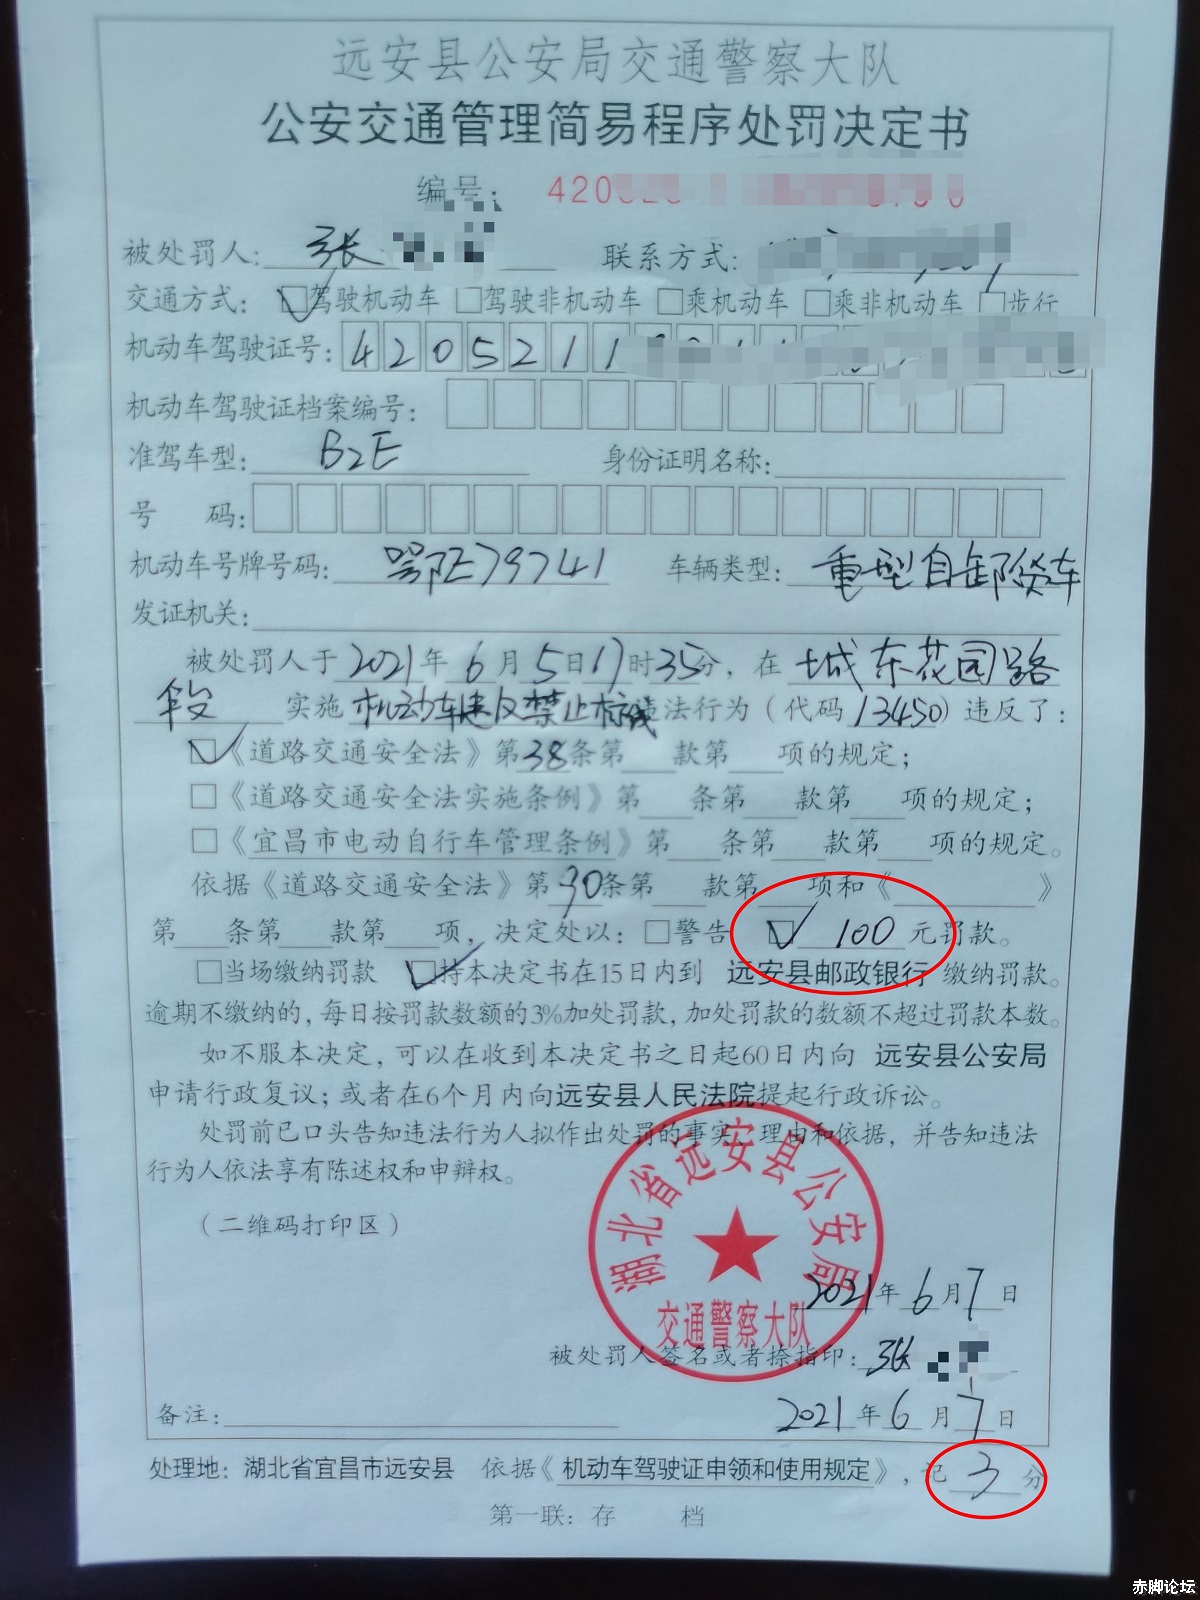 远安县公安局交通警察大队
公安交通管理简易程序处罚决定书
编号: 420
被处罚人: 张 联系方式:
交通方式: ☑驾驶机动车 □驾驶非机动车 □乘机动车 □乘非机动车 □步行
机动车驾驶证号: 4205211
机动车驾驶证档案编号:
准驾车型: B2E 身份证明名称:
号 码:
机动车号牌号码: 鄂E79741 车辆类型: 重型自卸货车
发证机关:
被处罚人于 2021年 6月5日17时35分, 在 城东花园路
段 实施 机动车违反禁止标线违法行为 (代码 13450) 违反了:
☑《道路交通安全法》第38条第 款第 项的规定;
□《道路交通安全法实施条例》第 条第 款第 项的规定;
□《宜昌市电动自行车管理条例》第 条第 款第 项的规定。
依据《道路交通安全法》第90条第 款第 项和《 》
第 条第 款第 项, 决定处以: □警告 ☑ 100 元罚款。
□当场缴纳罚款 ☑持本决定书在15日内到 远安县邮政银行 缴纳罚款。
逾期不缴纳的, 每日按罚款数额的3%加处罚款, 加处罚款的数额不超过罚款本数。
如不服本决定, 可以在收到本决定书之日起60日内向 远安县公安局
申请行政复议; 或者在6个月内向远安县人民法院提起行政诉讼。
处罚前已口头告知违法行为人拟作出处罚的事实、理由和依据, 并告知违法
行为人依法享有陈述权和申辩权。
(二维码打印区)
湖北省远安县公安局
交通警察大队
2021年 6月7日
被处罚人签名或者捺指印: 张
2021年 6月7日
备注:
处理地: 湖北省宜昌市远安县 依据《机动车驾驶证申领和使用规定》, 记 3 分
第一联: 存 档
赤脚论坛